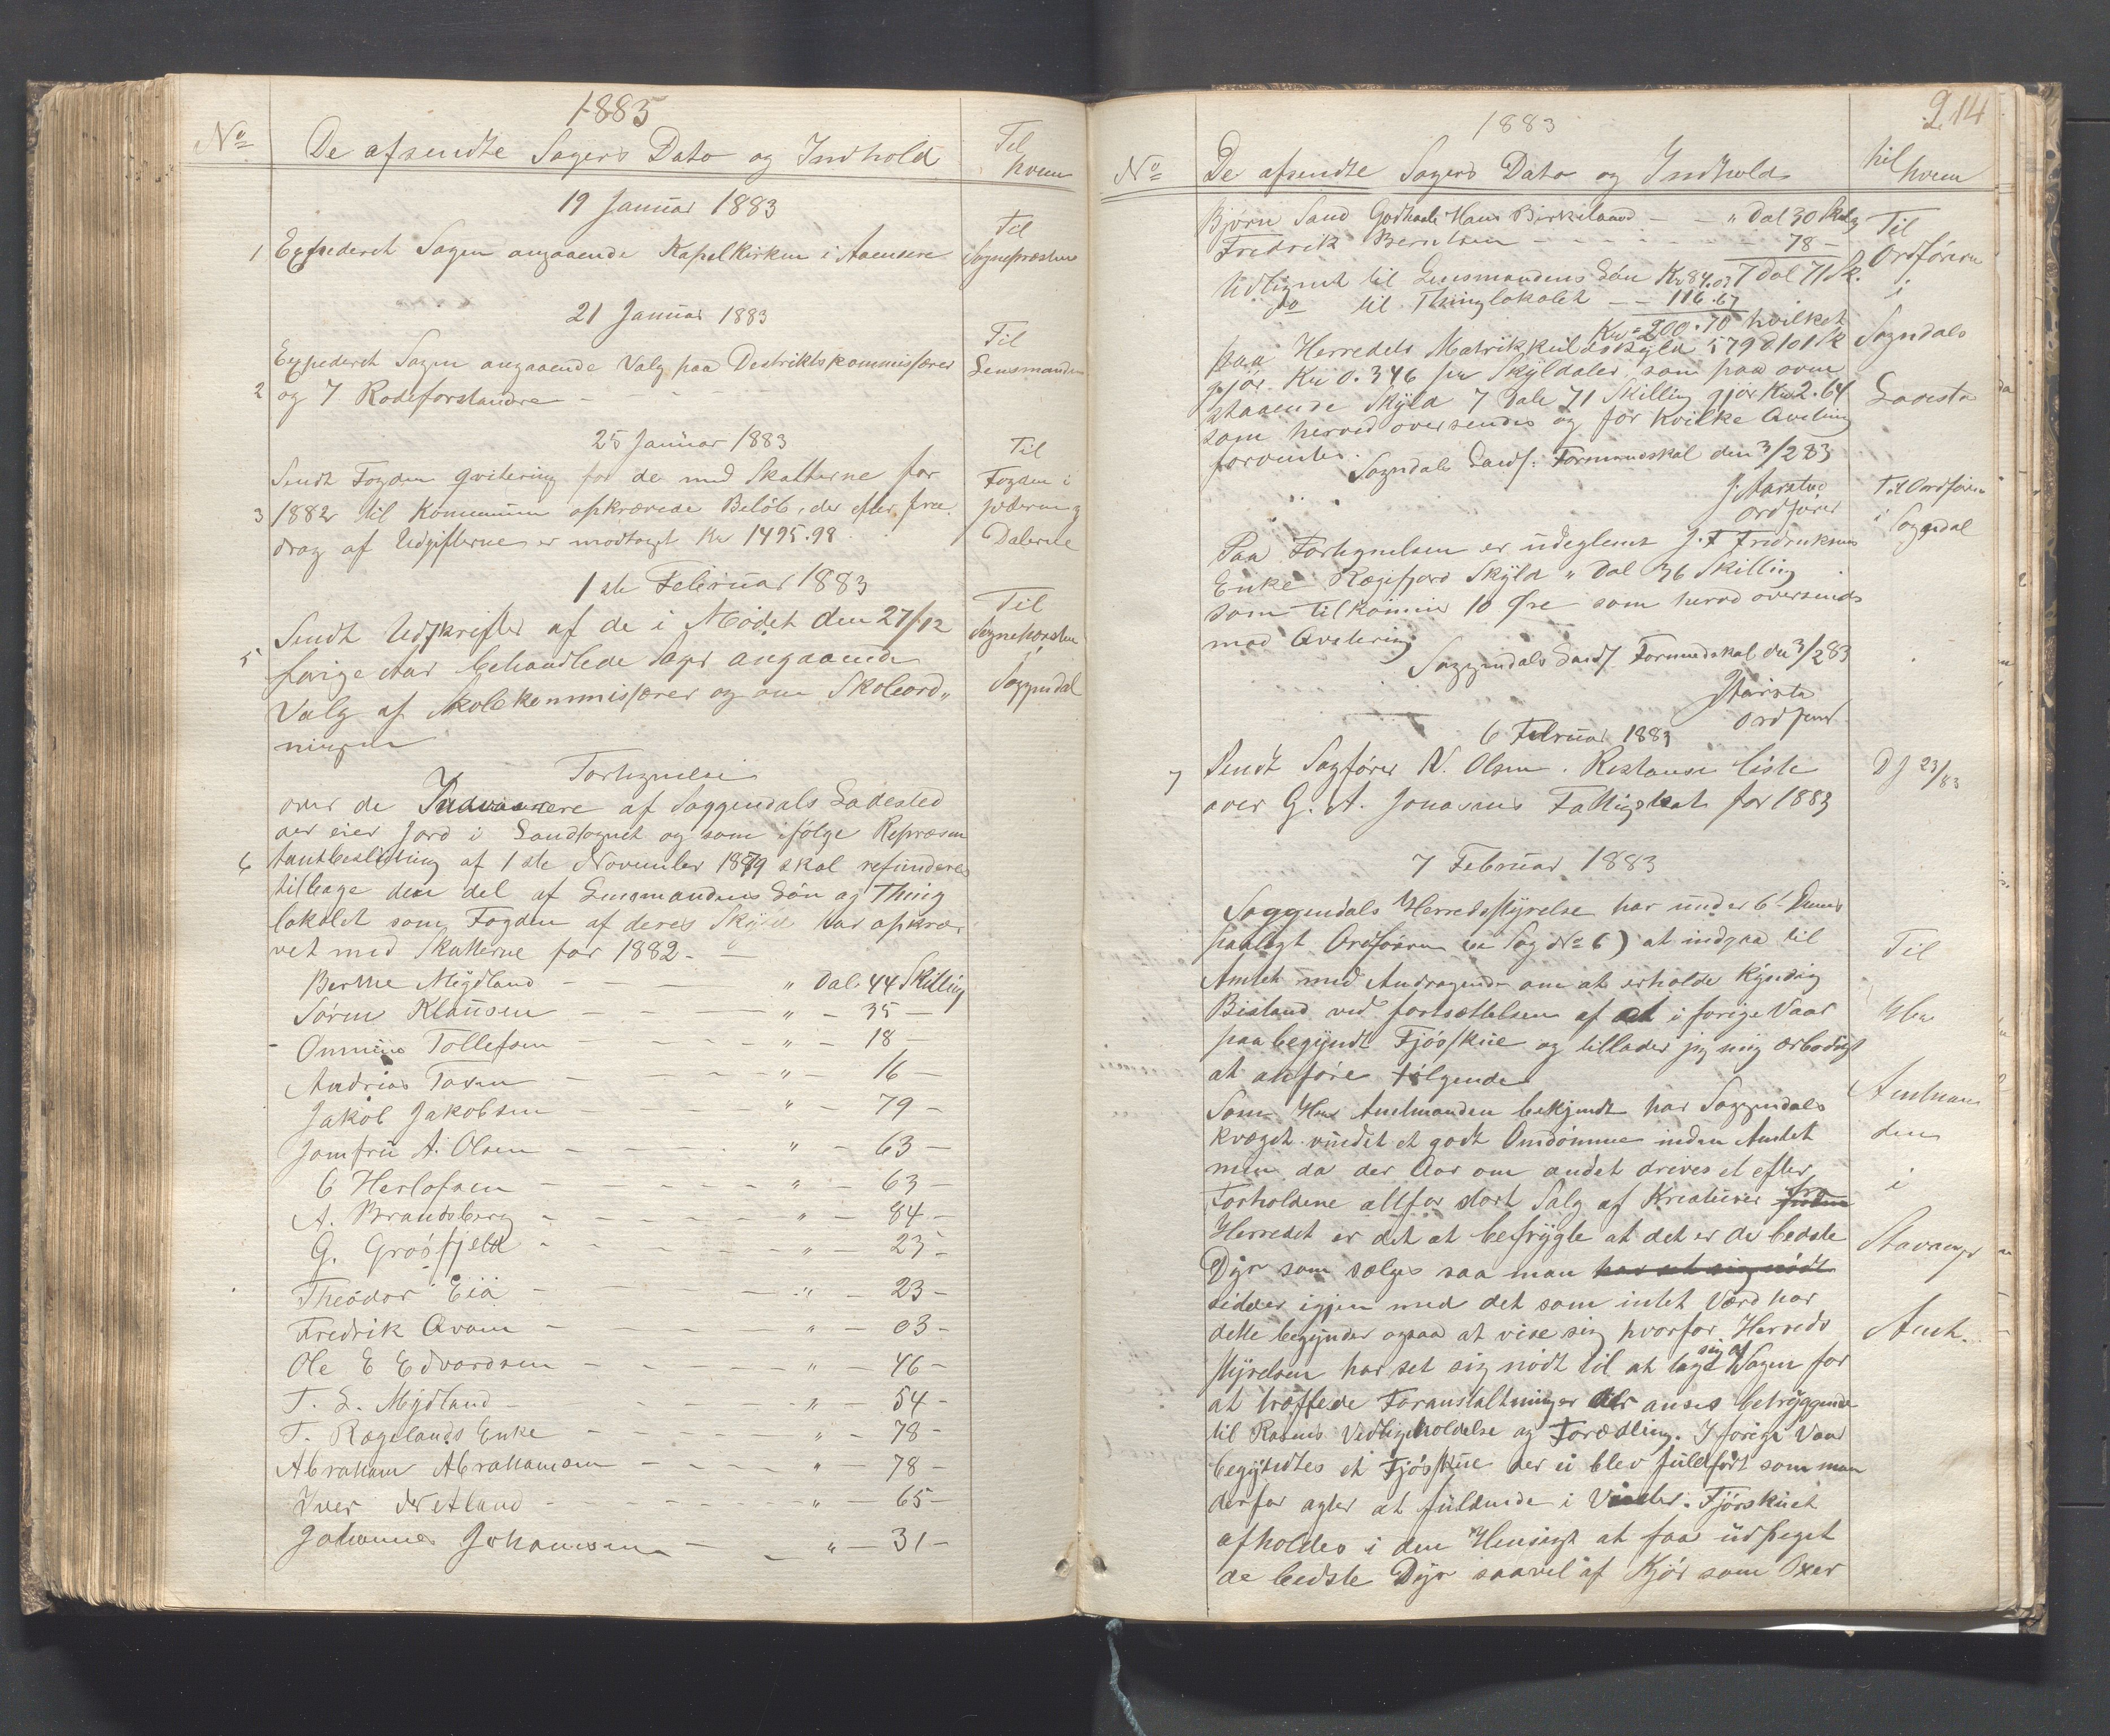 1883
No
De afsendte Sagers Dato og Indhold
Til
hvem
19 Januar 1883
1 Expederet Sagen angaaende Kapelkirken i Aaensere
Til
Sognepræsten
21 Januar 1883
Expederet Sagen angaaende Valg paa Destriktskommissærer
2 og 7 Rodeforstandre
Til
Lensmanden
25 Januar 1883
Sendt Fogden qvitering for de med Skatterne for
3 1882 til Kommunen opkrævede Beløb, der efter fra
drag af Udgifterne er modtaget Kr 1495.98
Til
Fogden i
Jæderen og
Dalerne
1ste Februar 1883
Sendt Udskrifter af de i Mødet den 27/12
5 forige Aar behandlede Sager angaaende
Valg af Skolekommissærer og om Skoleord„
ningen
Til
Sognepræsten
i
Soggendal
Fortegnelse
over de Indvaanere af Soggendals Ladested
der eier Jord i Landsognet og som ifølge Repræsen
6 tantbeslutning af 1ste November 1879 skal refunderes
tilbage den del af Lensmandens Løn og Thing
lokalet som Fogden af deres Skyld har opkræ„
vet med Skatterne for 1882 -
Berthe Mydland - - - „ Dal. 44 Skilling
Søren Klausen - - - „ - 35 -
Onnius Tollefsen - - - „ - 18 -
Andrias Tosen - - - „ - 16 -
Jakob Jakobsen - - - „ - 79 -
Jomfru A. Olsen - - - „ - 63 -
C Herlofsen - - - „ - 63 -
A. Brandsberg - - - „ - 84 -
G. Grøsfjeld - - - „ - 25 -
Theodor Eiä - - - „ - 23 -
Fredrik Aven - - - „ - 03 -
Ole E Edvardsen - - - „ - 46 -
T. L. Mydland - - - „ - 54 -
T. Rægelands Enke - - - „ - 78 -
Abraham Abrahamsen - - - „ - 78 -
Iver Netland - - - „ - 65 -
Johannes Johannesen - - „ - 31 -
214
1883
No
De afsendte Sagers Dato og Indhold
til
hvem
Bjørn Sand Godhaab Hans Birkeland - - „ Dal 30 Skillg
Fredrik Berntsen - - - - 78 -
Udlignet til Lensmandens Løn Kr 84.03 7 Dal 71 Sk.
do til Thinglokalet - - 116.67
Kr = 200.70 hvilket
paa Herredets Matrikkulskyld 579 d 101 Sk
gjør Kr 0.346 pr Skylddaler, som paa oven
staaende Skyld 7 Dale 71 Skilling gjør Kr 2.64
som herved oversendes og for hvilke Qvitering
forventes.
Til
Ordføreren
i
Sogndals
Ladested
Sogndals Landf. Formandskab den 3/2 83
J Aarstad
Ordfører
Paa Fortegnelsen er udeglemt J. F Fredriksens
Enke Rægefjord Skyld „ Dal 36 Skilling
som tilkommer 10 Øre som herved oversendes
mod Qvitering
Til Ordføren
i Sogndal
Soggendals Landf. Formandskab den 3/2 83
J Aarstad
Ordfører
6 Februar 1883
7 Sendt Sagfører N. Olsen. Restanse liste
over G. A. Jonasens Fattigskat for 1883
DJ 23/83
7 Februar 1883
Soggendals Herredsstyrelse har under 6t Dennes
paalagt Ordføreren (se Sag No 6) at indgaa til
Amtet med Andragende om at erholde Kyndig
Bistand ved fortsættelsen af et i forige Vaar
paabegyndt Fjøsskue og tillader jeg mig ærbødigst
at anføre følgende
Som Hr Amtmanden bekjendt har Soggendals
kvæget vundet et godt Omdømme inden Amtet
men da der Aar om andet drives et efter
Forholdene altfor stort Salg af Kreaturer fra
Herredet er det at befrygte at det er de bedste
Dyr som sælges saa man har set sig nødt
sidder igjen med det som intet Værd har
dette begynder ogsaa at vise sig hvorfor Herreds
styrelsen har set sig nødt til at tage sig af Sagen for
at træffede Foranstaltninger der anses betryggende
til Rasens Vedligeholdelse og Forædling. I forige Vaar
begyndtes et Fjøsskue der ei blev fuldført som man
derfor agter at fuldende i Vinter. Fjøsskuet
afholdes i den Hensigt at faa udpeget
de bedste Dyr saavel af Kjør som Oxer
Til
Hr
Amtman
den
i
Stavanger
Amt.